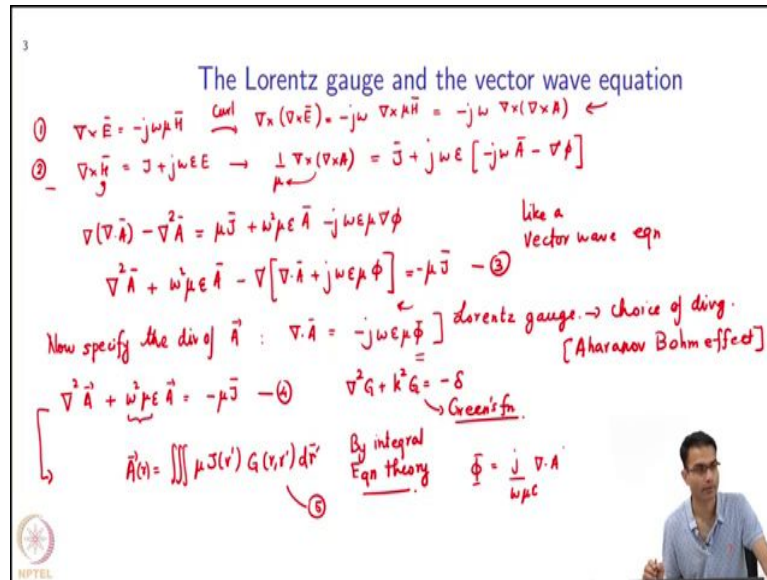 3
The Lorentz gauge and the vector wave equation
① ∇×Ē = -jωμH̄ Curl ∇×(∇×Ē) = -jω ∇×μH̄ = -jω ∇×(∇×A) ←
② ∇×H̄ = J + jωεE → 1/μ ∇×(∇×A) = J̄ + jωε [-jωĀ - ∇φ]
∇(∇.Ā) - ∇²Ā = μJ̄ + ω²με Ā - jωεμ∇φ
like a
vector wave eqn
∇²Ā + ω²με Ā - ∇[∇.Ā + jωεμ φ] = -μJ̄ — ③
Now specify the div of A⃗ : ∇.Ā = -jωεμΦ̄ ] Lorentz gauge. → choice of divg.
[Aharanov Bohm effect]
∇²A⃗ + ω²με A⃗ = -μJ̄ — ④ ∇²G + k²G = -δ
→ Green's fn.
A⃗(r) = ∭ μJ(r') G(r,r') dr̄' By integral Eqn theory Φ = j/ωμε ∇.A
⑤
NPTEL